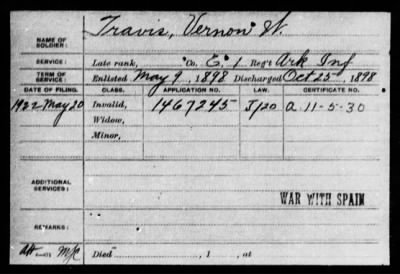 NAME OF SOLDIER: Travis, Vernon W.
SERVICE: Late rank, Co. E, 1 Reg't Ark Inf
TERM OF SERVICE: Enlisted May 9, 1898 Discharged Oct 25, 1898
DATE OF FILING. CLASS. APPLICATION NO. LAW. CERTIFICATE NO.
1922 May 20 Invalid, 1467245 J/20 a. 11-5-30
Widow,
Minor,
ADDITIONAL SERVICES:
WAR WITH SPAIN
REMARKS:
Died , 1 , at